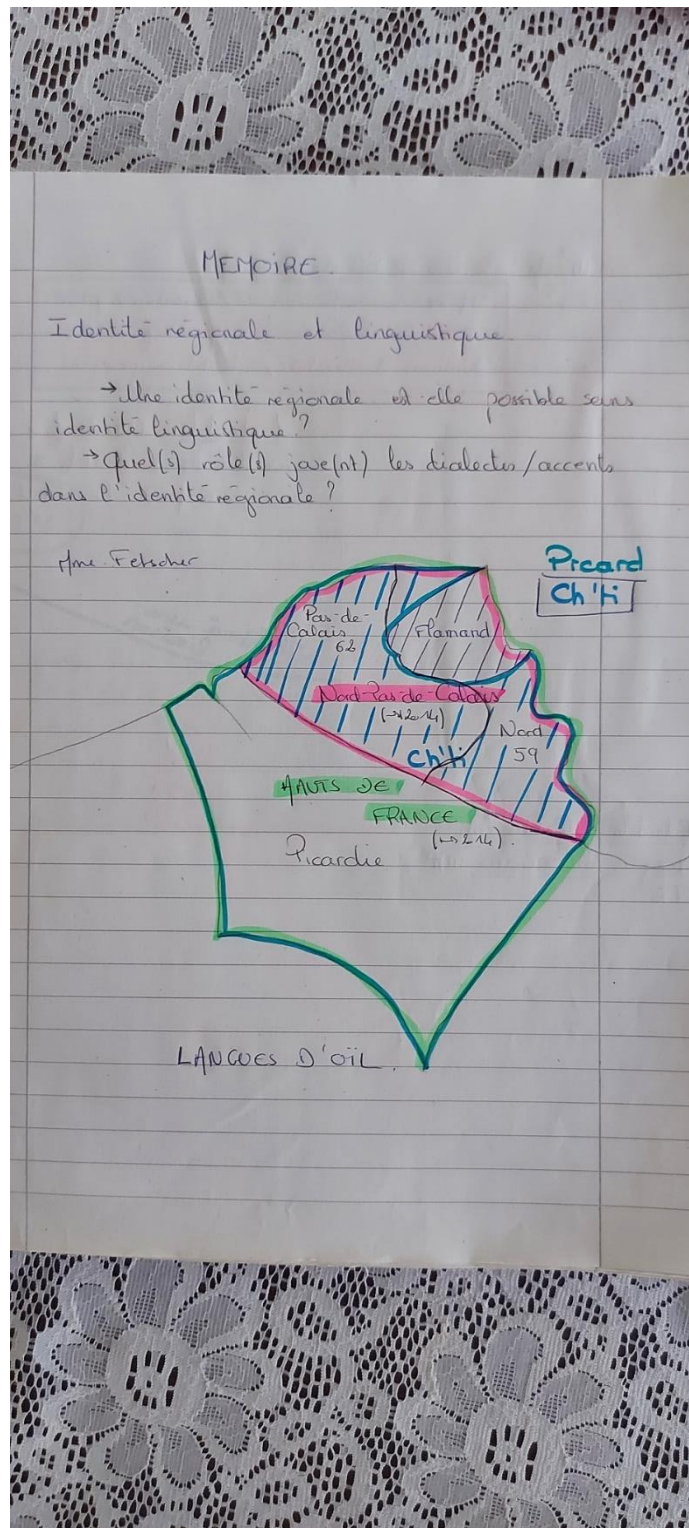 MEMOIRE.
Identité régionale et linguistique
→ Une identité régionale est elle possible sans
identité linguistique ?
→ Quel(s) rôle(s) joue(nt) les dialectes/accents
dans l'identité régionale ?
Mme. Fetscher
Picard
Ch'ti
Pas-de-
Calais
62
Flamand
Nord-Pas-de-Calais
(→2014)
Nord
59
Ch'ti
HAUTS DE
FRANCE
(→214).
Picardie
LANGUES D'OÏL.